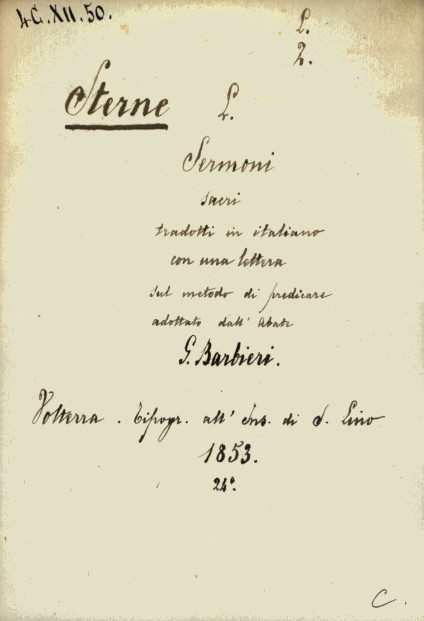 4C.XII.50.
L.
2.
Sterne L.
Sermoni
sacri
tradotti in italiano
con una lettera
sul metodo di predicare
adottato dall' Abate
G. Barbieri.
Volterra. Tipogr. all' Ins. di S. Lino
1853.
24°.
C.